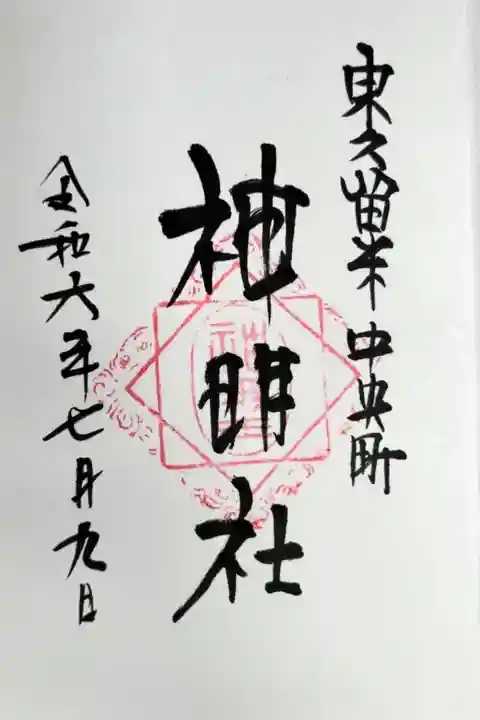 東久留米 中央町
神明社
令和六年七月九日